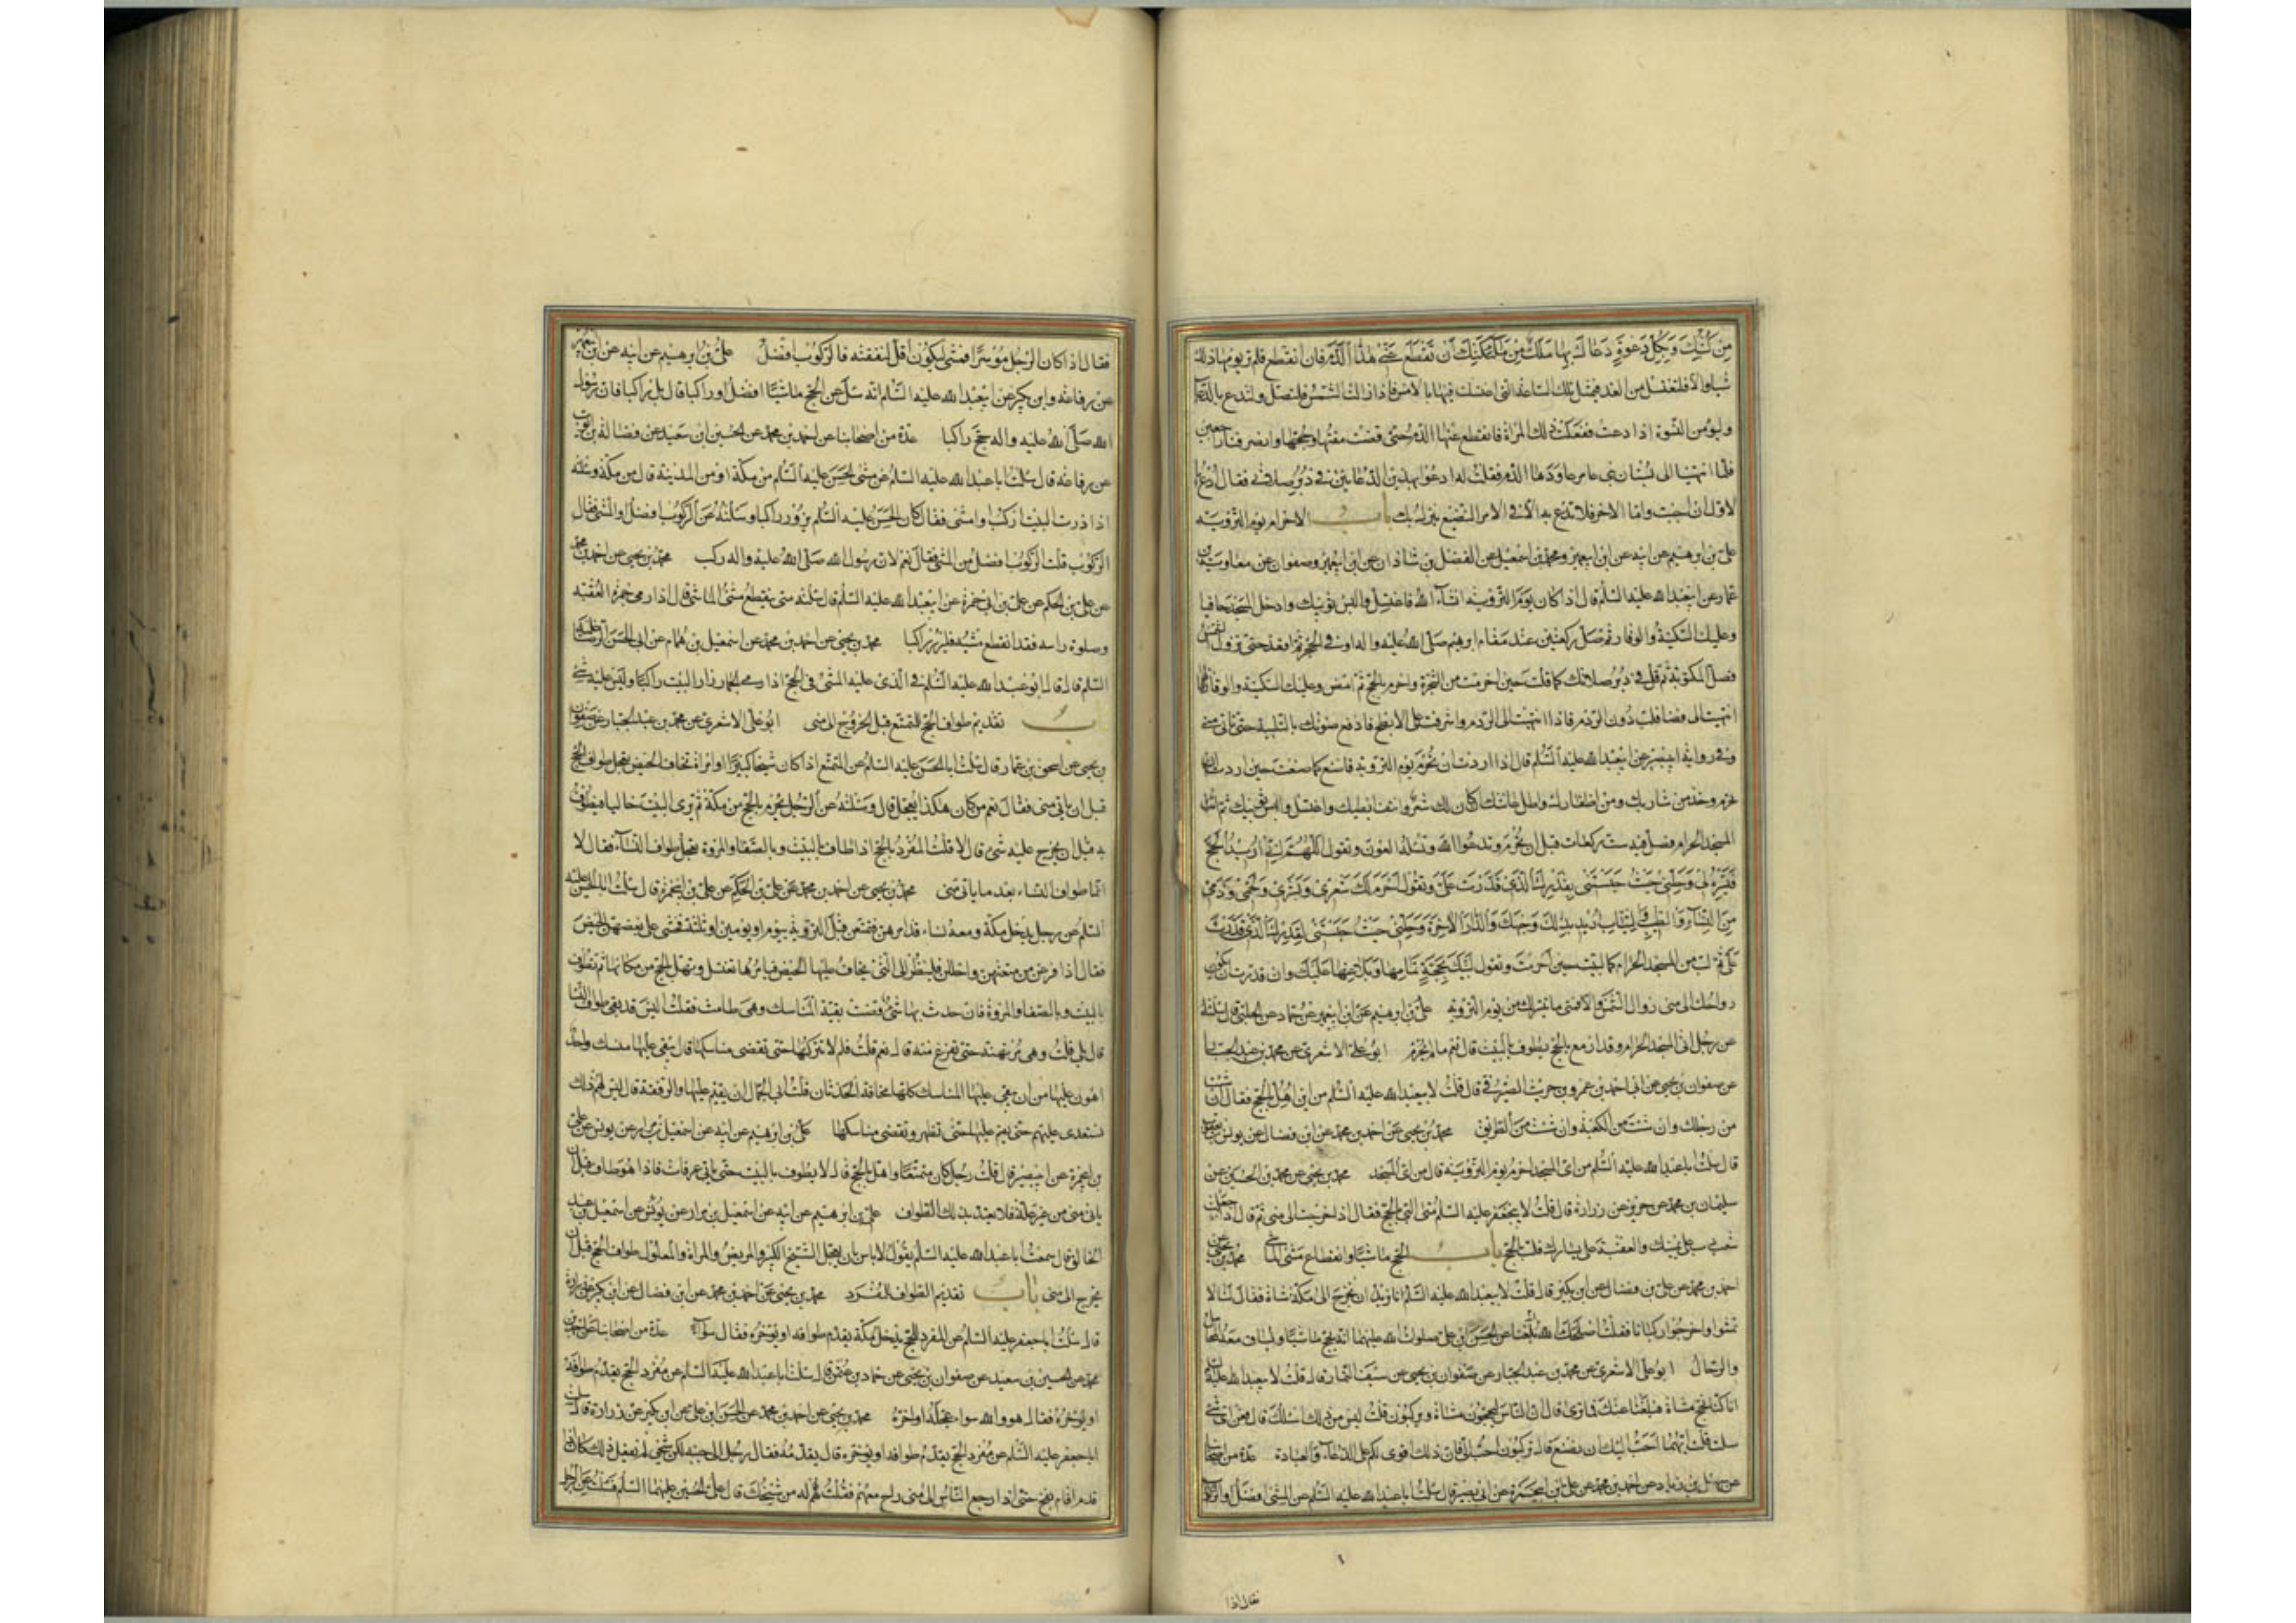 من كتبك وبكل دعوة دعاك بها ملك من ملائكتك ان تقطع عني هذا الدم فان انقطع فلم تر يومها ذلك
شيئا والا فلتغتسل من الغد في مثل تلك الساعة التي اغتسلت فيها بالامس فاذا زالت الشمس فلتصل ولتدع بالدعاء
وليؤمن النسوة اذا دعت ففعلت ذلك المراة فانقطع عنها الدم حتى قضت متعتها وحجها وانصرفنا راجعين
فلما انتهينا الى بستان بني عامر عاودها الدم فقلت له ادعوا بهذين الدعائين في دبر صلاتي فقال ادع
الاول ان احببت واما الاخر فلا تدع به الا في الامر الفظيع ينزل بك باب الاحرام يوم التروية
علي بن ابرهيم عن ابيه عن ابن ابي عمير ومحمد بن اسمعيل عن الفضل بن شاذان عن ابن ابي عمير وصفوان عن معاوية بن
عمار عن ابي عبد الله عليه السلم قال اذا كان يوم التروية انشاء الله فاغتسل والبس ثوبيك وادخل المسجد حافيا
وعليك السكينة والوقار ثم صل ركعتين عند مقام ابرهيم صلى الله عليه واله او في الحجر ثم اقعد حتى تزول الشمس
فصل المكتوبة ثم قل في دبر صلاتك كما قلت حين احرمت من الشجرة واحرم بالحج ثم امض وعليك السكينة والوقار فاذا
انتهيت الى فضا دون الردم فاذا انتهيت الى الردم واشرفت على الابطح فارفع صوتك بالتلبية حتى تاتي منى
وفي رواية ابي بصير عن ابي عبد الله عليه السلم قال اذا اردت ان تحرم يوم التروية فاصنع كما صنعت حين اردت ان
تحرم وخذ من شاربك ومن اظفارك واطل عانتك ان كان لك شعر وانتف ابطيك واغتسل والبس ثوبيك ثم ائت
المسجد الحرام فصل فيه ست ركعات قبل ان تحرم وتدعوا الله وتسئله العون وتقول اللهم اني اريد الحج
فيسره لي وحلني حيث حبستني بقدرك الذي قدرت علي وتقول احرم لك شعري وبشري ولحمي ودمي
من النساء والطيب والثياب اريد بذلك وجهك والدار الاخرة وحلني حيث حبستني لقدرك الذي قدرت
علي ثم لب من المسجد الحرام كما لبيت حين احرمت وتقول لبيك بحجة تمامها وبلاغها عليك وان قدرت ان يكون
رواحك الى منى زوال الشمس والا فمتى ما تيسر لك من يوم التروية علي بن ابرهيم عن ابن ابي عمير عن حماد عن الحلبي قال سئلته
عن رجل اتى المسجد الحرام وقد ازمع بالحج يطوف بالبيت قال نعم ما لم يحرم ابو علي الاشعري عن محمد بن عبد الجبار
عن صفوان بن يحيى عن ابي احمد بن عمرو بن حريث الصيرفي قال قلت لابي عبد الله عليه السلم من اين اهل بالحج فقال ان شئت
من رحلك وان شئت من الكعبة وان شئت من الطريق محمد بن يحيى عن احمد بن محمد عن ابن فضال عن يونس بن يعقوب
قال سئلت ابا عبد الله عليه السلم من اي المسجد احرم يوم التروية قال من اي المسجد محمد بن يحيى عن محمد بن الحسين عن
سليمان بن محمد عن حريز عن زرارة قال قلت لابي جعفر عليه السلم متى البي بالحج فقال اذا خرجت الى منى ثم قال اذا جعلت
شعب دب على يمينك والعقبة على يسارك فلب بالحج باب الحج ماشيا وانقطاع مشي الماشي محمد بن يحيى عن
احمد بن محمد عن علي بن فضال عن ابن بكير قال قلت لابي عبد الله عليه السلم انا نريد ان نخرج الى مكة مشاة فقال لنا لا
تمشوا واخرجوا ركبانا فقلت اصلحك الله بلغنا عن الحسن بن علي صلوات الله عليهما انه يحج ماشيا وتساق معه المحامل
والرحال ابو علي الاشعري عن محمد بن عبد الجبار عن صفوان بن يحيى عن سيف التمار قال قلت لابي عبد الله عليه السلم
انا كنا نحج مشاة فبلغنا عنك شي فما ترى قال ان الناس ليحجون مشاة ويركبون قلت ليس عن ذلك اسئلك قال فعن اي شيء
سئلت قلت ايهما احب اليك ان نصنع قال تركبون احب الي فان ذلك اقوى لكم على الدعاء والعبادة عدة من اصحابنا
عن سهل بن زياد عن احمد بن محمد عن علي بن ابي حمزة عن ابي بصير قال سئلت ابا عبد الله عليه السلم عن المشي افضل او الركوب
فقال اذا
فقال اذا كان الرجل موسرا فمشى ليكون اقل لنفقته فالركوب افضل علي بن ابرهيم عن ابيه عن ابن ابي عمير
عن رفاعة وابن بكير عن ابي عبد الله عليه السلم انه سئل عن الحج ماشيا افضل او راكبا قال بل راكبا فان رسول
الله صلى الله عليه واله حج راكبا عدة من اصحابنا عن احمد بن محمد عن الحسين ابن سعيد عن فضالة بن ايوب
عن رفاعة قال سئلت ابا عبد الله عليه السلم عن مشي الحسن عليه السلم من مكة او من المدينة قال من مكة وسئلته
اذا زرت البيت اركب او امشي فقال كان الحسن عليه السلم يزور راكبا وسئلته عن الركوب افضل او المشي فقال
الركوب قلت الركوب افضل من المشي فقال نعم لان رسول الله صلى الله عليه واله ركب محمد بن يحيى عن احمد بن محمد
عن علي بن الحكم عن علي بن ابي حمزة عن ابي عبد الله عليه السلم قال سئلته متى ينقطع مشي الماشي قال اذا رمى جمرة العقبة
وحلق راسه فقد انقطع مشيه فليزر راكبا محمد بن يحيى عن احمد بن محمد عن اسمعيل بن همام عن ابي الحسن الرضا عليه
السلم قال قال ابو عبد الله عليه السلم في الذي عليه المشي في الحج اذا رمى الجمار زار البيت راكبا وليس عليه شيء
باب تقديم طواف الحج للمتمتع قبل الخروج الى منى ابو علي الاشعري عن محمد بن عبد الجبار عن صفوان
بن يحيى عن اسحق بن عمار قال سئلت ابا الحسن عليه السلم عن المتمتع اذا كان شيخا كبيرا او امراة تخاف الحيض يعجل طواف الحج
قبل ان ياتي منى فقال نعم من كان هكذا يعجل قال وسئلته عن الرجل يحرم بالحج من مكة ثم يرى البيت خاليا فيطوف
به قبل ان يخرج عليه شيء قال لا قلت المفرد بالحج اذا طاف بالبيت وبالصفا والمروة يعجل طواف النساء فقال لا
انما طواف النساء بعد ما ياتي منى محمد بن يحيى عن احمد بن محمد عن علي بن الحكم عن علي بن ابي حمزة قال سئلت ابا الحسن عليه
السلم عن رجل يدخل مكة ومعه نساء قد امرهن فتمتعن قبل التروية بيوم او يومين او ثلثة فخشي على بعضهن الحيض
فقال اذا فرغن من متعتهن واحللن فلينظر الى التي يخاف عليها الحيض فيامرها تغتسل وتهل بالحج من مكانها ثم تطوف
بالبيت وبالصفا والمروة فان حدث بها شيء قضت بقية المناسك وهي طامث فقلت اليس قد بقي طواف النساء
قال بلى قلت وهي مرتهنة حتى تفرغ منه قال نعم قلت فلم لا تتركها حتى تقضي مناسكها قال يبقى عليها منسك واحد
اهون عليها من ان يبقى عليها المناسك كلها مخافة الحدثان قلت ابى الجمال ان يقيم عليها والرفقة قال ليس لهم ذلك
تستعدى عليهم حتى يقيم عليها حتى تطهر وتقضي مناسكها علي بن ابرهيم عن ابيه عن اسمعيل بن مرار عن يونس عن علي
بن ابي حمزة عن ابي بصير قال قلت رجل كان متمتعا واهل بالحج قال لا يطوف بالبيت حتى ياتي عرفات فاذا هو طاف قبل ان
ياتي منى من غير علة فلا يعتد بذلك الطواف علي بن ابرهيم عن ابيه عن اسمعيل بن مرار عن يونس عن اسمعيل بن عبد
الخالق قال سمعت ابا عبد الله عليه السلم يقول لا باس ان يعجل الشيخ الكبير والمريض والمراة والمعلول طواف الحج قبل ان
يخرج الى منى باب تقديم الطواف للمفرد محمد بن يحيى عن احمد بن محمد عن ابن فضال عن ابن بكير عن زرارة
قال سئلت ابا جعفر عليه السلم عن المفرد للحج يدخل مكة يقدم طوافه او يؤخره فقال سواء عدة من اصحابنا عن احمد بن
محمد عن الحسين بن سعيد عن صفوان بن يحيى عن حماد بن عثمن قال سئلت ابا عبد الله عليه السلم عن مفرد الحج يقدم طوافه
او يؤخره فقال هو والله سواء عجله او اخره محمد بن يحيى عن احمد بن محمد عن الحسن بن علي عن ابن بكير عن زرارة قال سئلت
ابا جعفر عليه السلم عن مفرد الحج يقدم طوافه او يؤخره قال يقدمه فقال رجل الى جنبه لكن شيخي لم يفعل ذلك كان اذا
قدم اقام بفخ حتى اذا رجع الناس الى منى راح معهم فقلت له من شيخك قال علي بن الحسين عليهما السلم فسئلت عن الرجل